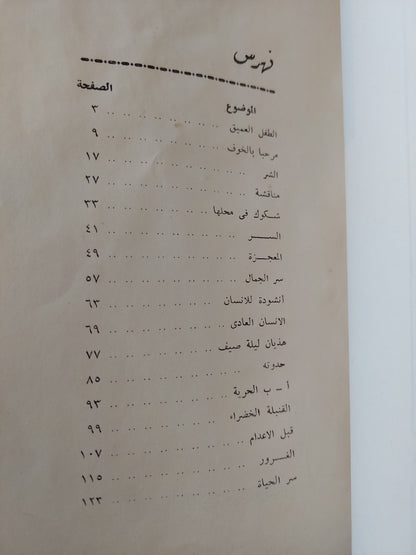 فهرس
الموضوع الصفحة
الطفل العميق .. .. .. .. .. .. .. .. ٣
مرحبا بالخوف .. .. .. .. .. .. .. .. ٩
الشر .. .. .. .. .. .. .. .. ١٧
مناقشة .. .. .. .. .. .. .. .. ٢٧
شكوك فى محلها .. .. .. .. .. .. .. .. ٣٣
الســـر .. .. .. .. .. .. .. .. ٤١
المعجزة .. .. .. .. .. .. .. .. ٤٩
سر الجمال .. .. .. .. .. .. .. .. ٥٧
أنشودة للانسان .. .. .. .. .. .. .. .. ٦٣
الانسان العادى .. .. .. .. .. .. .. .. ٦٩
هذيان ليلة صيف .. .. .. .. .. .. .. .. ٧٧
حدوته .. .. .. .. .. .. .. .. ٨٥
أ – ب الحرية .. .. .. .. .. .. .. .. ٩٣
القنبلة الخضراء .. .. .. .. .. .. .. .. ٩٩
قبل الاعدام .. .. .. .. .. .. .. .. ١٠٧
الغــرور .. .. .. .. .. .. .. .. ١١٥
سر الحياة .. .. .. .. .. .. .. .. ١٢٣